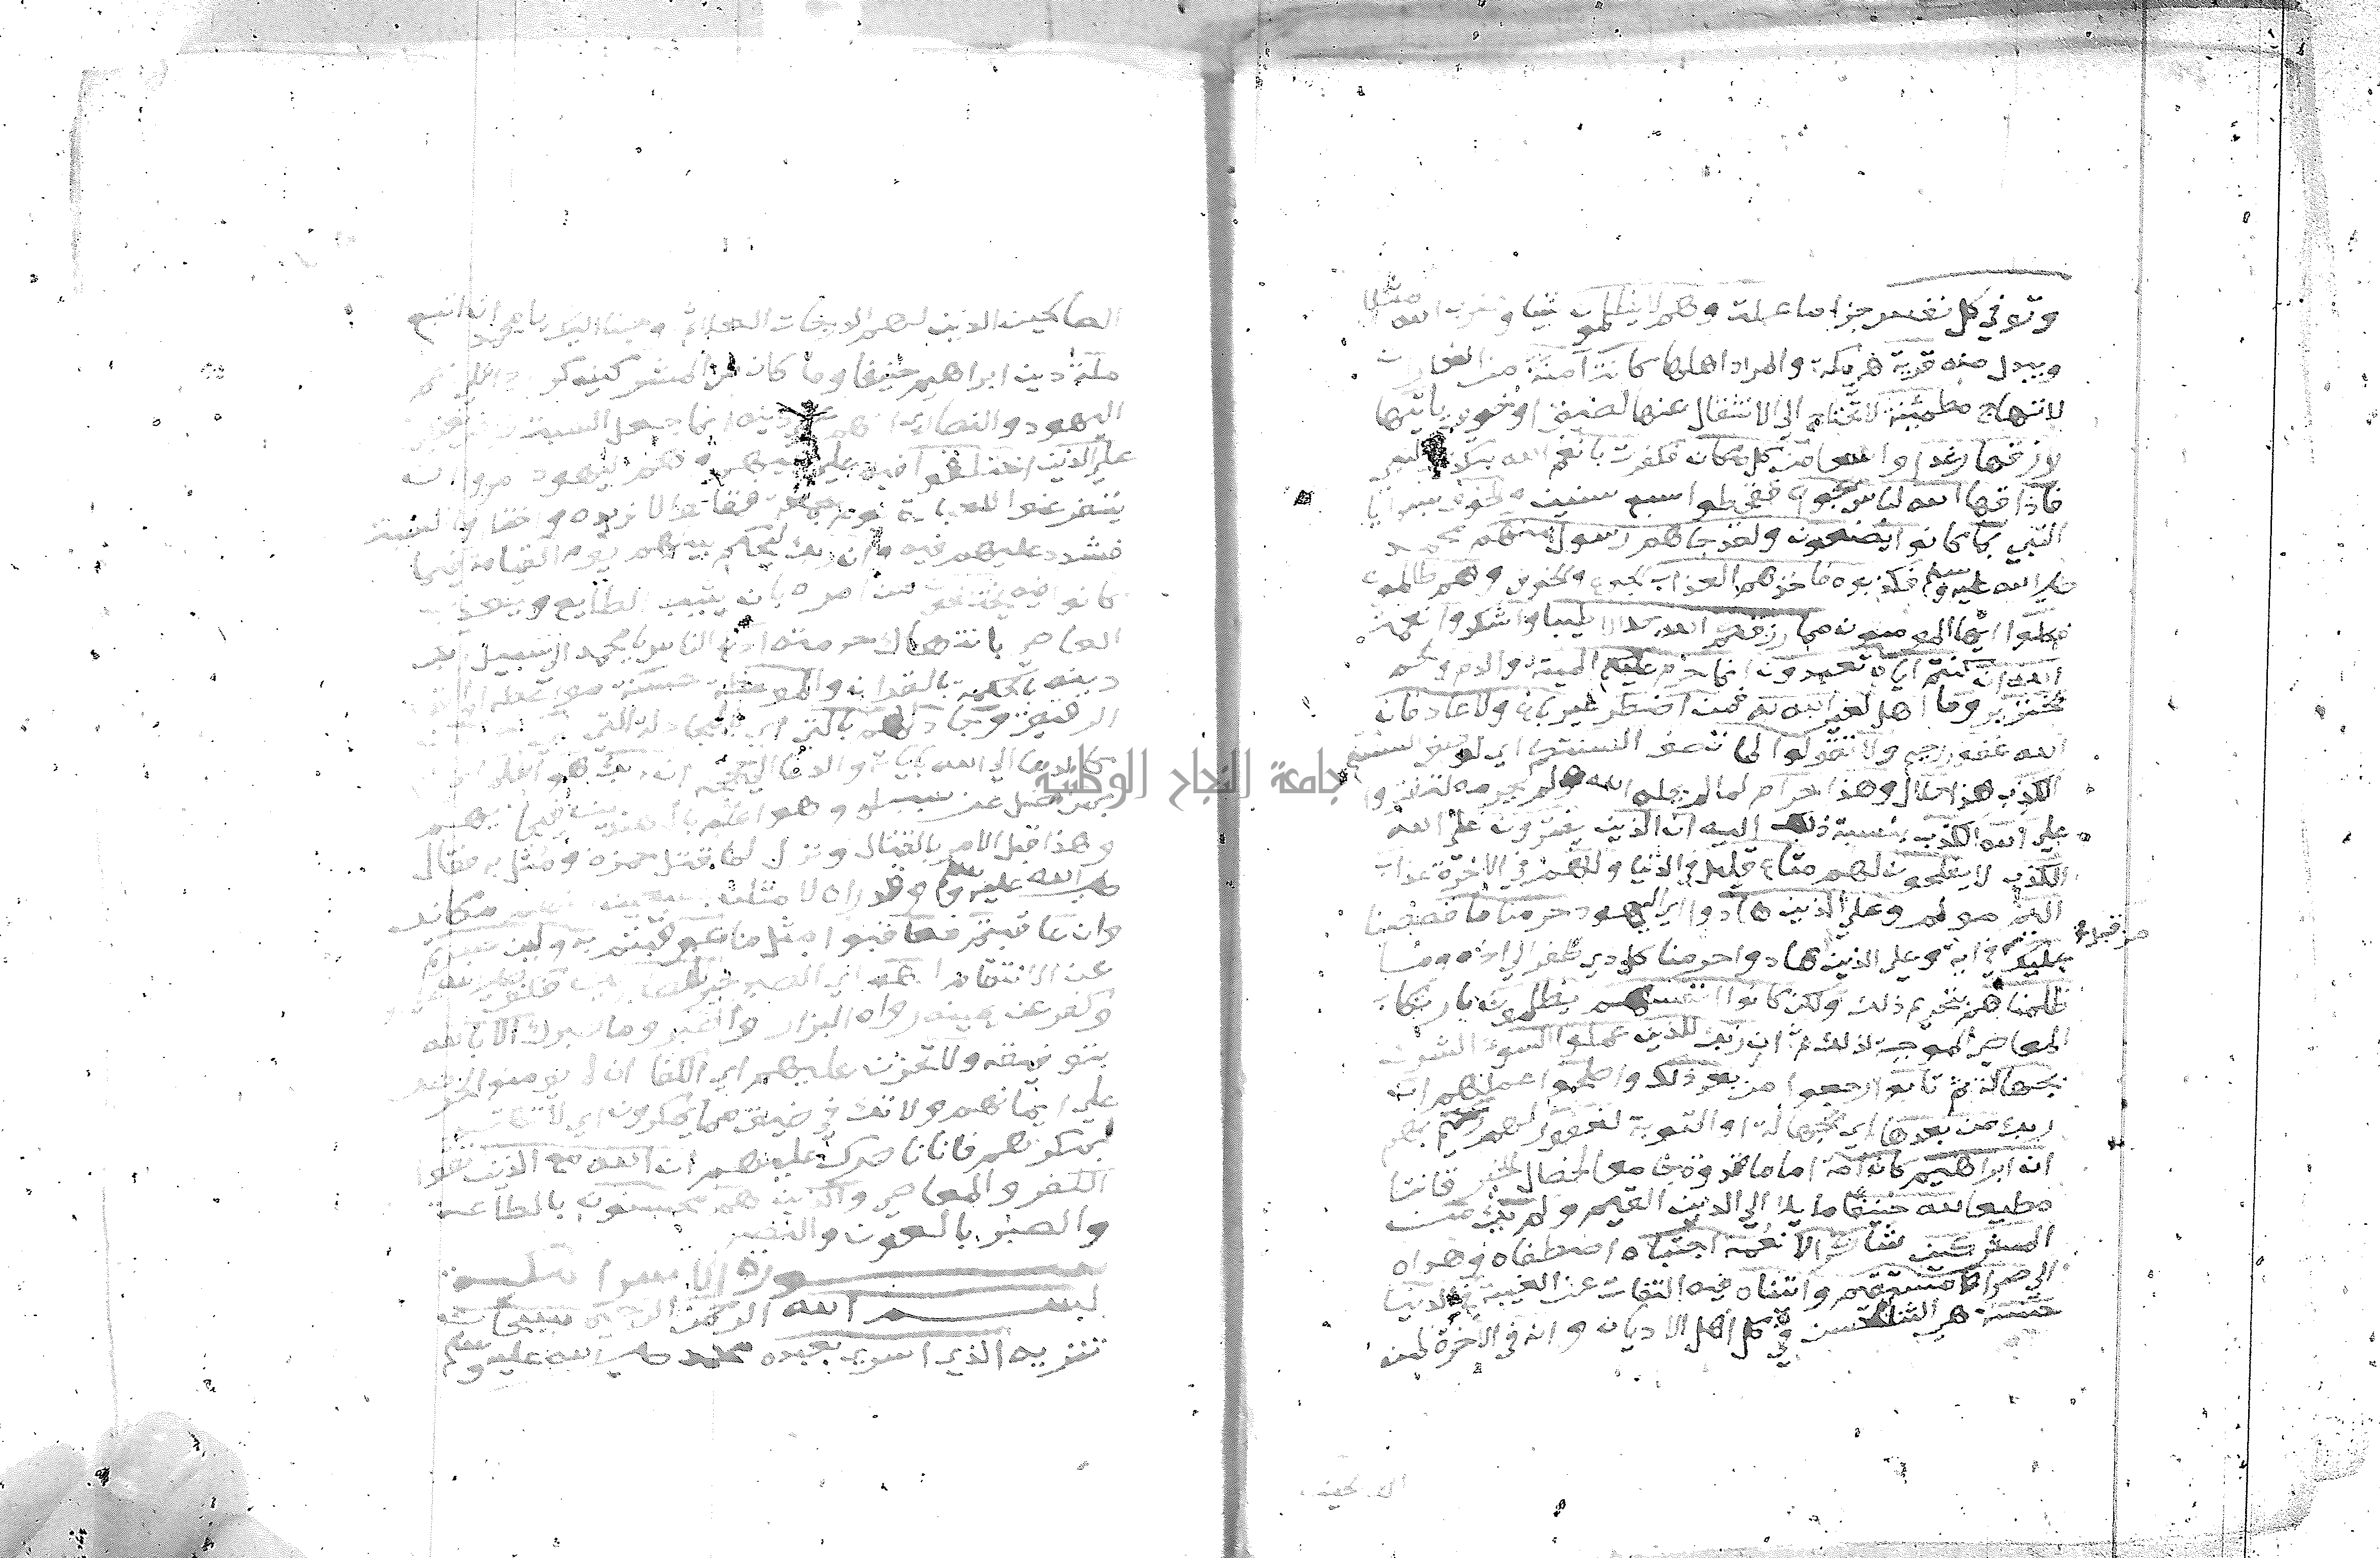 وتوفي كل نفس جزا ما عملت وهم لا يظلمون شيا وضرب الله مثلا
ويبدل منه قرية هي مكة والمراد اهلها كانت آمنة من الغارات
لا تهاج مطمئنة لا تحتاج الي الانتقال عنها لضيق او خوف ياتيها
رزقها رغدا واسعا من كل مكان فكفرت بانعم الله بتكذيب النبي
فاذاقها الله لباس الجوع فقحطوا سبع سنين والخوف بسرايا
النبي بما كانوا يصنعون ولقد جاهم رسول منهم محمد
صلي الله عليه وسلم فكذبوه فاخذهم العذاب الجوع والخوف وهم ظالمون
فكلوا ايها المومنون مما رزقكم الله حلالا طيبا واشكروا نعمة
الله ان كنتم اياه تعبدون انما حرم عليكم الميتة والدم ولحم
الخنزير وما اهل لغير الله به فمن اضطر غير باغ ولا عاد فان
الله غفور رحيم ولا تقولوا لما تصف السنتكم اي لوصف السنتكم
الكذب هذا حلال وهذا حرام لما لم يحله الله ولم يحرمه لتفتروا
علي الله الكذب بنسبة ذلك اليه ان الذين يفترون علي الله
الكذب لا يفلحون لهم متاع قليل في الدنيا ولهم في الاخرة عذاب
اليم مولم وعلي الذين هادوا اي اليهود حرمنا ما قصصنا
عليك من قبل في اية وعلي الذين هادوا حرمنا كل ذي ظفر الي اخره وما
ظلمناهم بتحريم ذلك ولكن كانوا انفسهم يظلمون بارتكاب
المعاصي الموجبة لذلك ثم ان ربك للذين عملوا السوء الشرك
بجهالة ثم تابوا رجعوا من بعد ذلك واصلحوا عملهم ان
ربك من بعدها اي الجهالة او التوبة لغفور لهم رحيم بهم
ان ابراهيم كان امة اماما قدوة جامعا لخصال الخير قانتا
مطيعا لله حنيفا مايلا الي الدين القيم ولم يك من
المشركين شاكرا لانعمه اجتباه اصطفاه وهداه
الي صراط مستقيم واتيناه فيه التفات عن الغيبة في الدنيا
حسنة هي الثنا الحسن في كل اهل الاديان وانه في الاخرة لمن
الصالحين
الصالحين الذين لهم الدرجات العلا ثم اوحينا اليك يا محمد ان اتبع
ملة دين ابراهيم حنيفا وما كان من المشركين كرر
اليهود والنصاري انهم علي دينه انما جعل السبت
علي الذين اختلفوا فيه علي نبيهم وهم اليهود امروا ان
يتفرغوا للعبادة يوم الجمعة فقالوا لا نريده واختاروا السبت
فشدد عليهم فيه وان ربك ليحكم بينهم يوم القيامة فيما
كانوا فيه يختلفون من امره بان يثيب الطايع ويعذب
العاصي بانتهاك حرمته ادع الناس يا محمد الي سبيل ربك
دينه بالحكمة بالقران والموعظة الحسنة مواعظه او القول
الرقيق وجادلهم بالتي اي بالمجادلة التي
كالدعا الي الله باياته والدعا الي حججه ان ربك هو اعلم
بمن ضل عن سبيله وهو اعلم بالمهتدين فيجازيهم
وهذا قبل الامر بالقتال ونزل لما قتل حمزة ومثل به فقال
صلي الله عليه وسلم وقد راه لامثلن بسبعين منهم مكانك
وان عاقبتم فعاقبوا بمثل ما عوقبتم به ولين صبرتم
عن الانتقام لهو اي الصبر خير للصابرين فكف
وكفر عن يمينه رواه البزار واصبر وما صبرك الا بالله
بتوفيقه ولا تحزن عليهم اي الكفار ان لم يومنوا لحرصك
علي ايمانهم ولا تك في ضيق مما يمكرون اي لا تهتم
بمكرهم فانا ناصرك عليهم ان الله مع الذين اتقوا
الكفر والمعاصي والذين هم محسنون بالطاعة
والصبر بالعون والنصر
سورة الاسرا مكية
بسم الله الرحمن الرحيم سبحان
تنزيه الذي اسري بعبده محمد صلي الله عليه وسلم
جامعة النجاح الوطنية